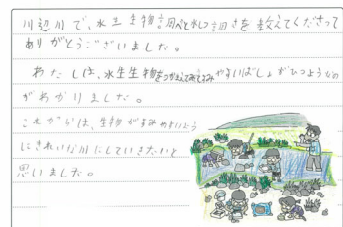 川辺川で、水生生物調べと水しつ調さを教えてくださって
ありがとうございました。
わたしは、水生生物をつかまえてみてすみやすいばしょがひつようなの
がわかりました。
これからは、生物がすみやすいよう
にきれいな川にしていきたいと
思いました。